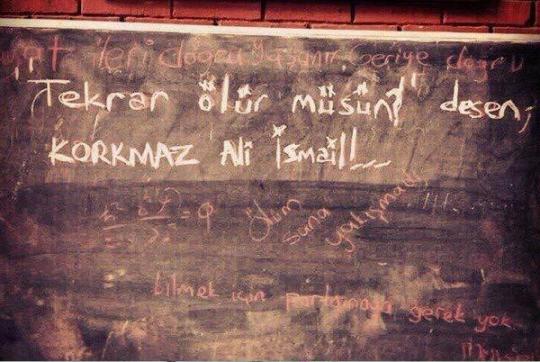 ileri doğru yaşanır, Geriye doğru
"Tekrar ölür müsün?" desen,
KORKMAZ Ali İsmail!...
ölüm
sana
yakışmadı
bilmek için parlamaya gerek yok